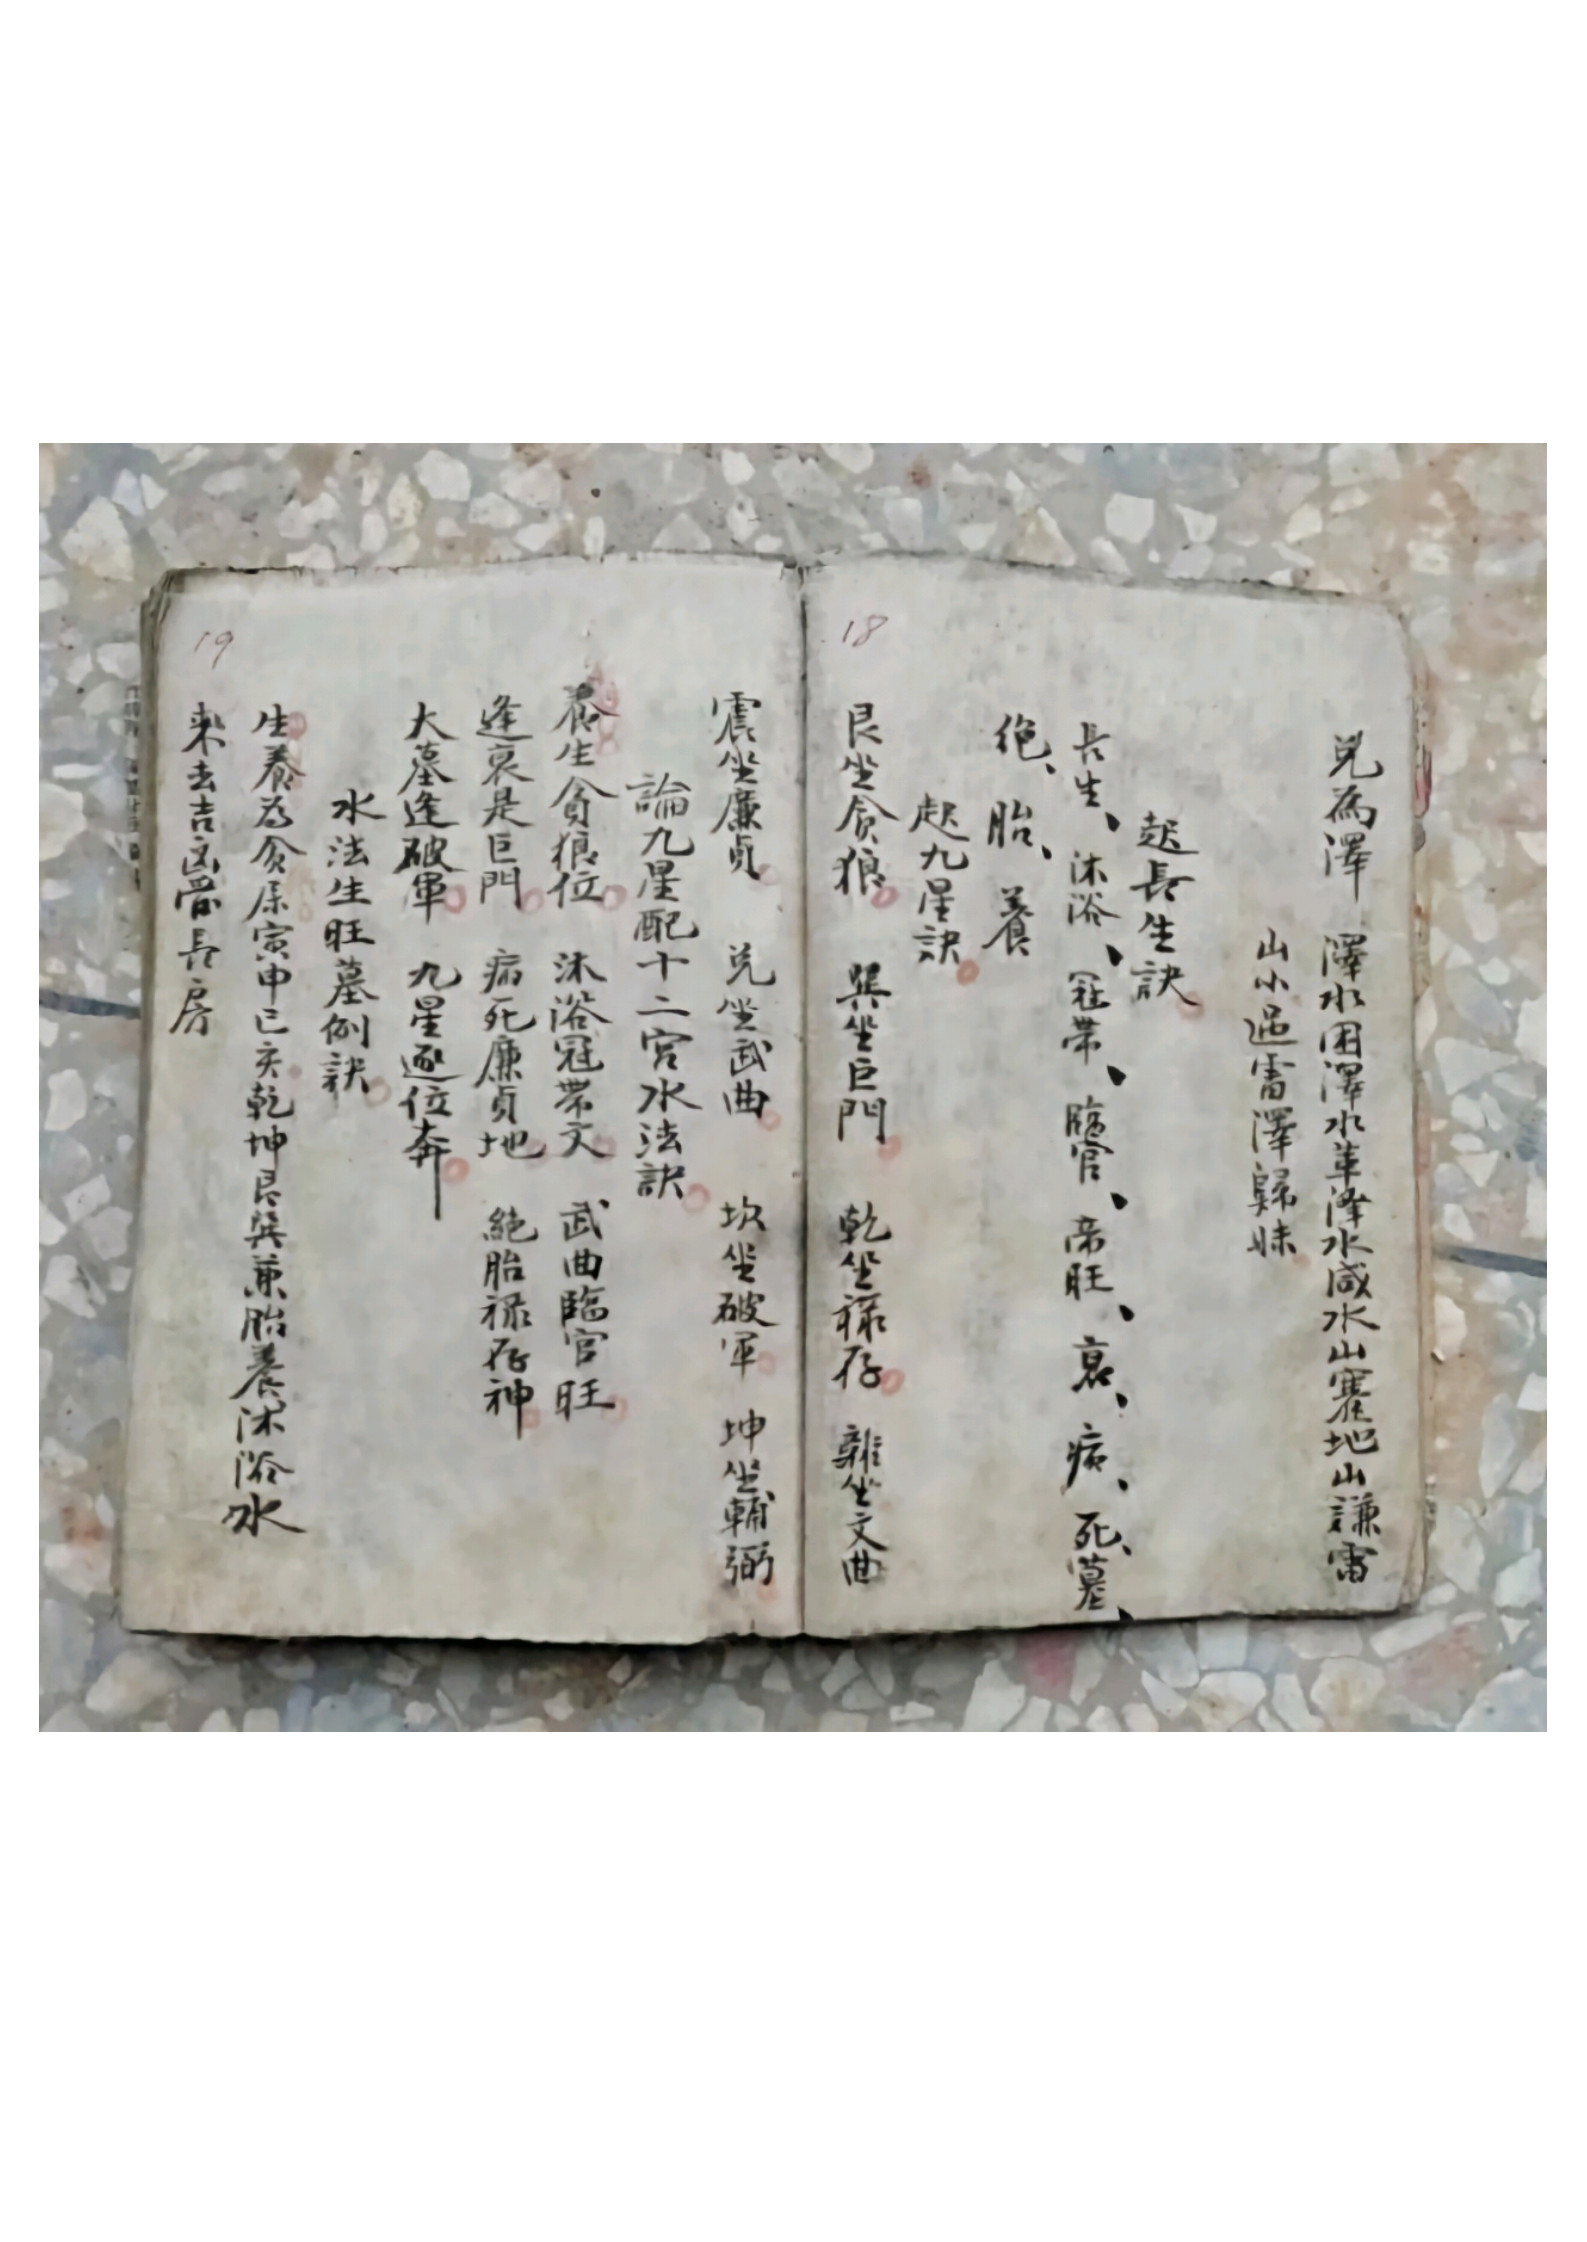 18
兑為澤 澤水困澤水革澤水咸水山蹇地山謙雷
山小過雷澤歸妹
起長生訣
長生、沐浴、冠帶、臨官、帝旺、衰、病、死、墓、
絶、胎、養
起九星訣
艮坐貪狼 巽坐巨門 乾坐祿存 離坐文曲
19
震坐廉貞 兑坐武曲 坎坐破軍 坤坐輔弼
論九星配十二宮水法訣
養生貪狼位 沐浴冠帶文 武曲臨官旺
逢衰是巨門 病死廉貞地 絕胎祿存神
大墓逢破軍 九星逐位奔
水法生旺墓例訣
生養為貪居寅申巳亥乾坤艮巽兼胎養沐浴水
來去吉凶管長房